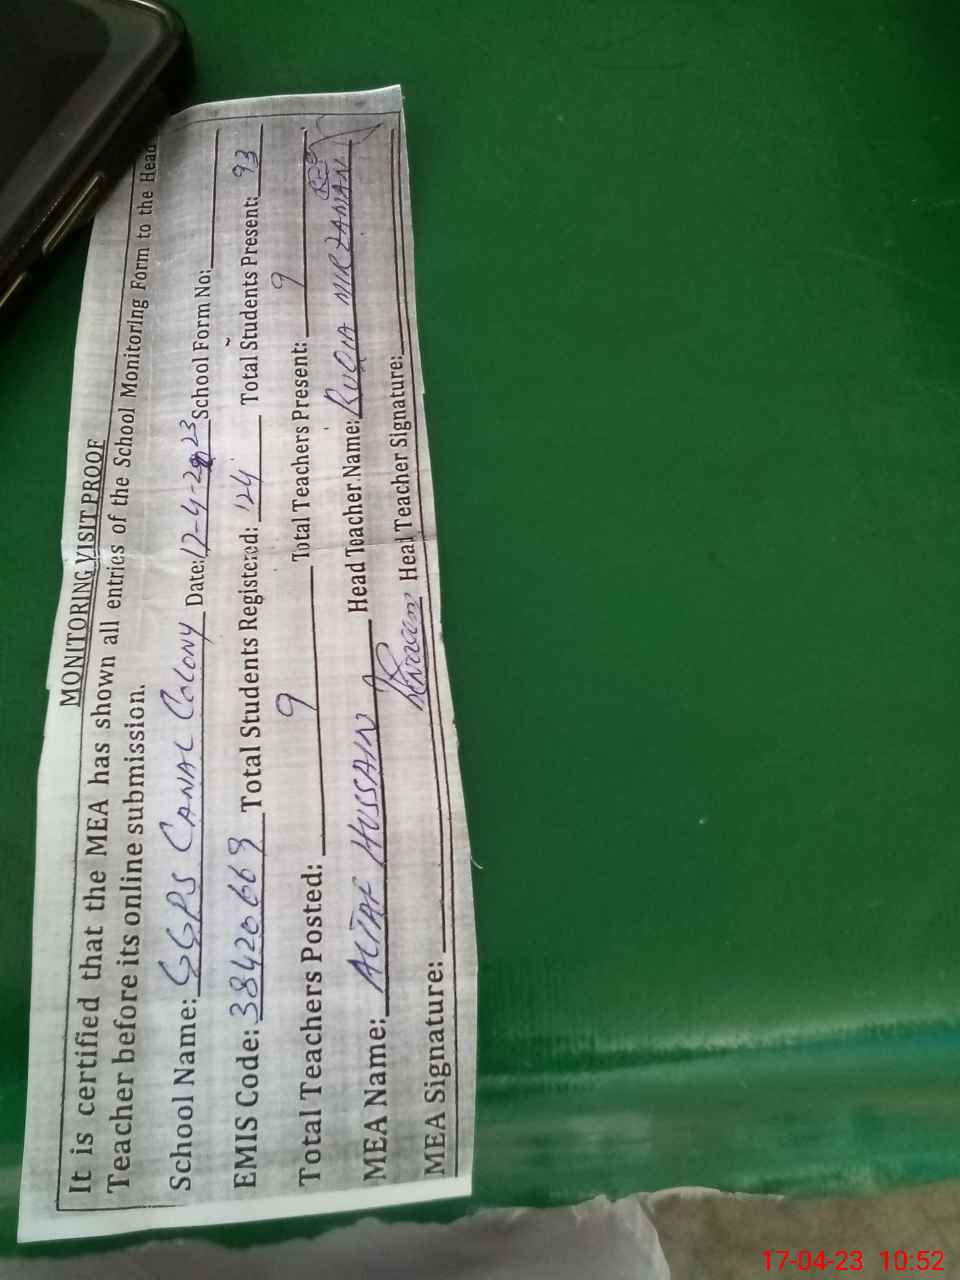 MONITORING VISIT PROOF
It is certified that the MEA has shown all entries of the School Monitoring Form to the Head
Teacher before its online submission.
School Name: GGPS CANAL COLONY Date: 17-4-2023 School Form No:
EMIS Code: 38420669 Total Students Registered: 124 Total Students Present: 93
Total Teachers Posted: 9 Total Teachers Present: 9
MEA Name: ALTAF HUSSAIN Head Teacher Name: RUQIA MIRZAMAN
MEA Signature: Head Teacher Signature:
17-04-23 10:52